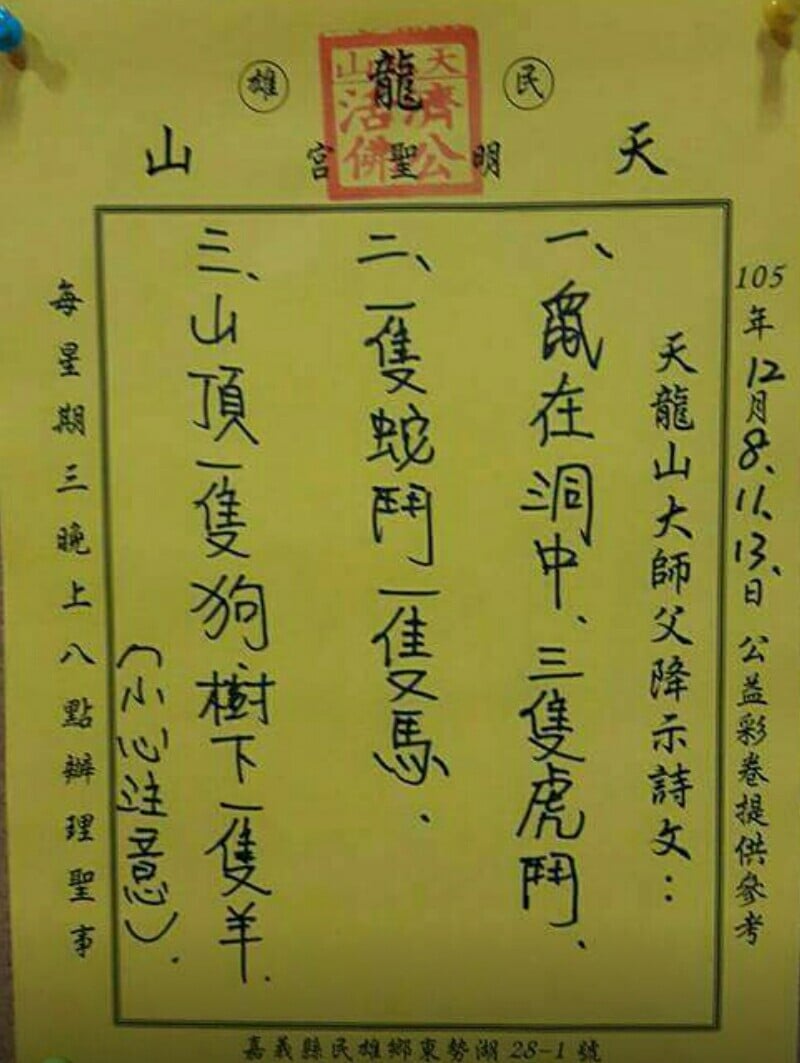 民雄
天龍山
明聖宮
大龍山
濟公
活佛
105年12月8、11、13、日 公益彩卷提供參考
天龍山大師父降示詩文：
一、鼠在洞中、三隻虎鬥、
二、一隻蛇鬥一隻馬、
三、山頂一隻狗樹下一隻羊.
（小心注意）.
每星期三晚上八點辦理聖事
嘉義縣民雄鄉東勢湖28-1號